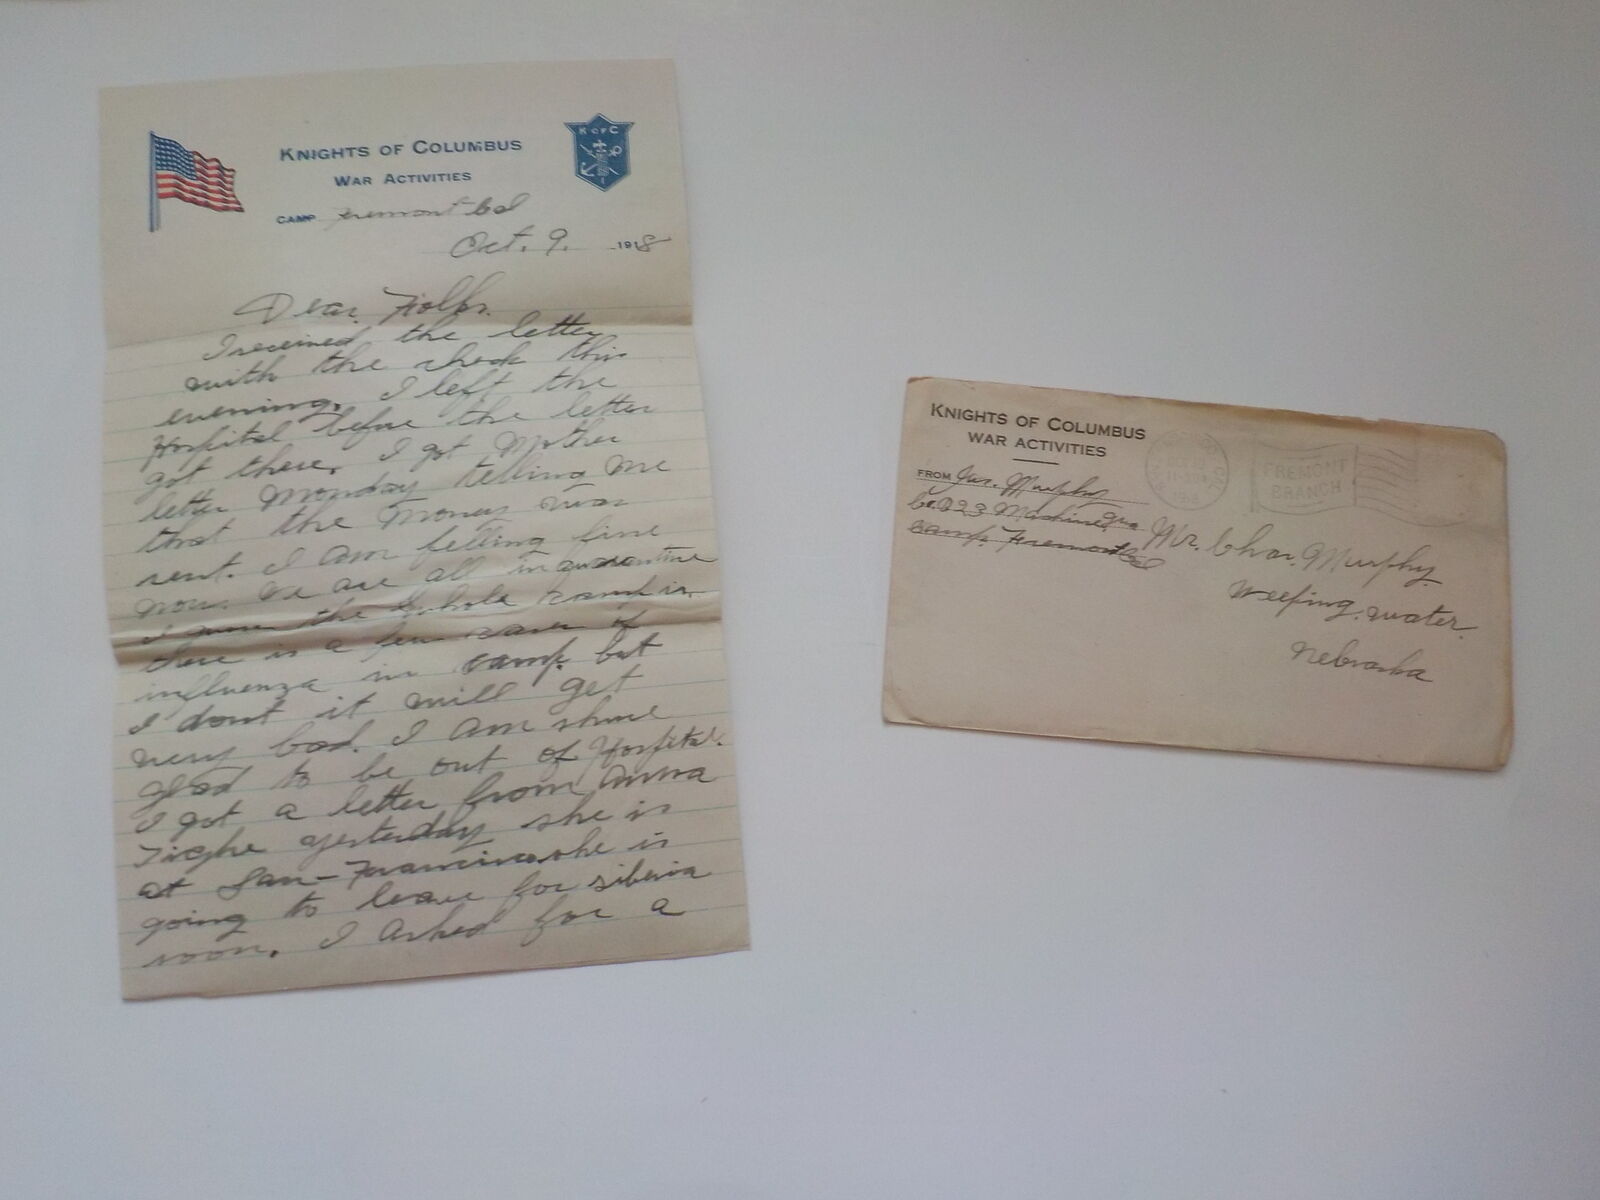 KNIGHTS OF COLUMBUS
WAR ACTIVITIES
K OF C
CAMP Fremont Cal
Oct. 9. 1918
Dear Folks.
I received the letter
with the check this
evening. I left the
Hospital before the letter
got there. I got Mother
letter Monday telling me
that the money was
sent. I am felling fine
now. We are all in quarantine
I guess the whole camp is.
there is a few cases of
influenza in camp. but
I dont it will get
very bad. I am shure
glad to be out of Hospital.
I got a letter from Anna
Tighe yesterday she is
at San-Francisco she is
going to leave for siberia
soon. I asked for a
KNIGHTS OF COLUMBUS
WAR ACTIVITIES
FROM Jas. Murphy
Co. D 23 Machine gun
Camp. Fremont Cal
1918
FREMONT
BRANCH
Mr. Chas. Murphy.
Weeping. water.
Nebraska